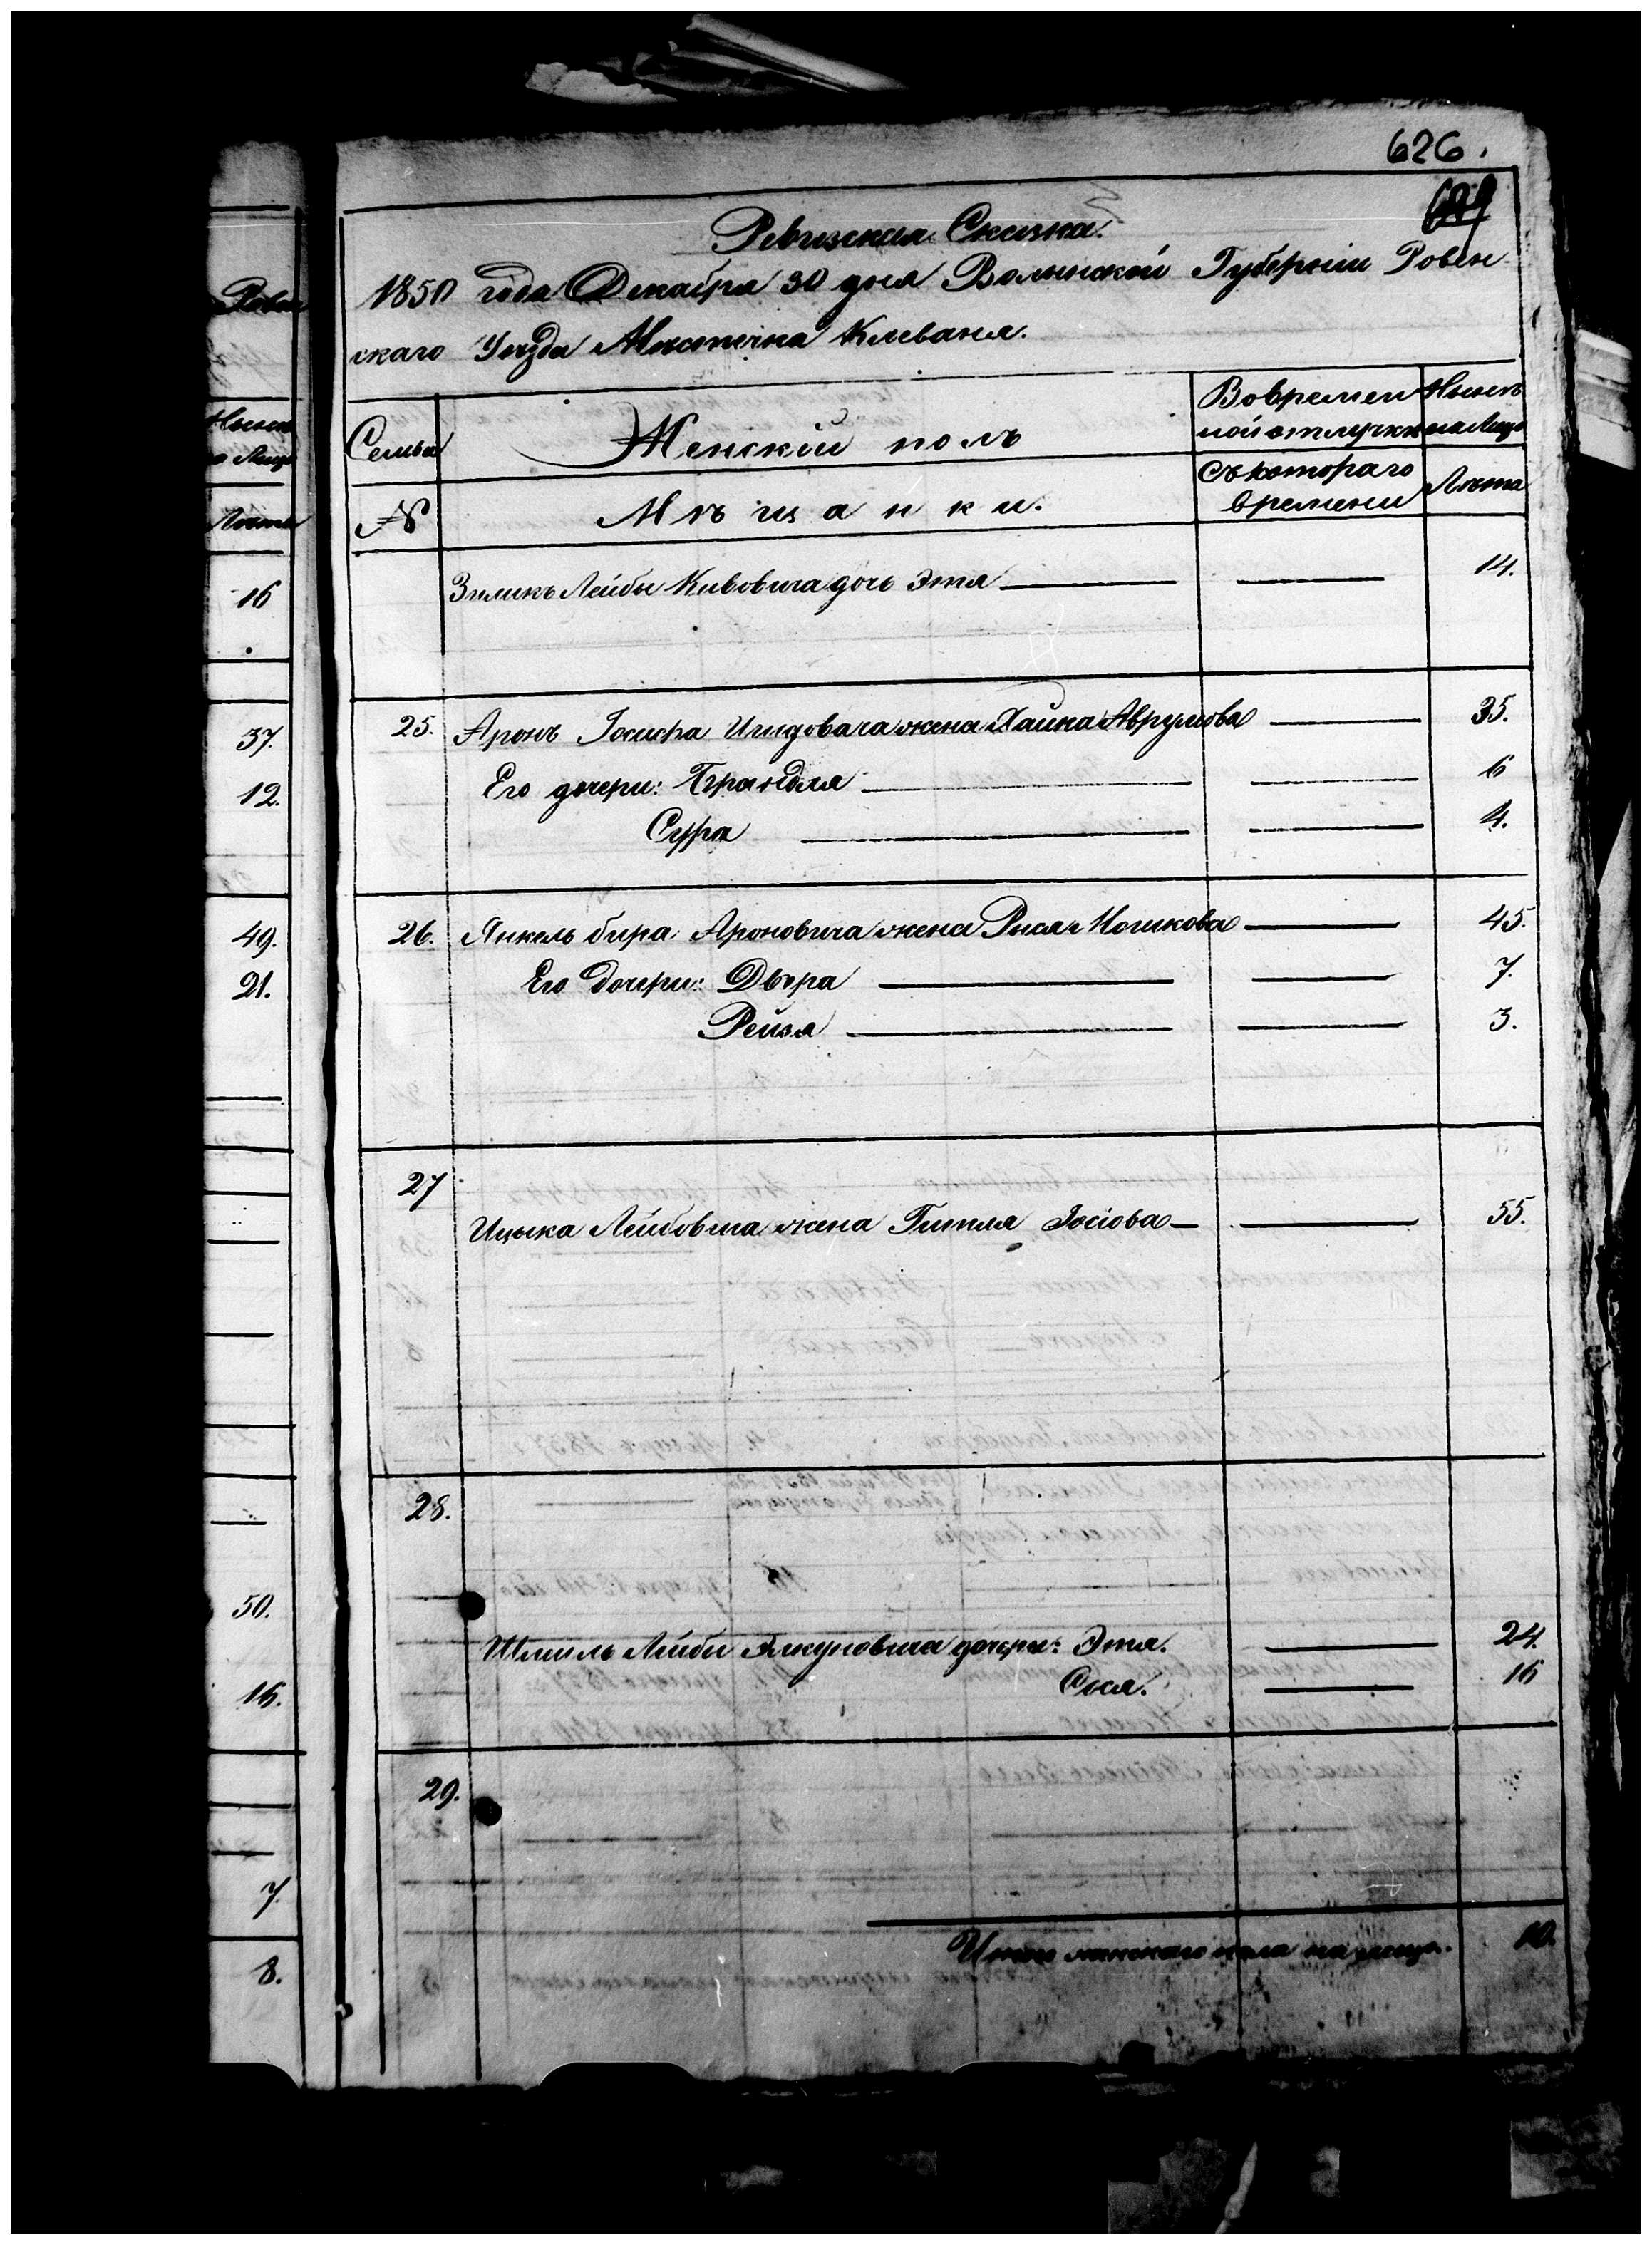 626.
Ревизская Сказка.
1850 года Декабря 30 дня Волынской Губерніи Ровен
скаго Уѣзда Мѣстечка Клеваня.
Семьи
Женскій полъ
Вовремен
ной отлучки
Нынѣ
на лицо
№
Мѣщанки.
Съ котораго
времени
Лѣта
Зеликъ Лейбы Кивовича дочь Этя 14.
25. Аронъ Іосифа жена Хайка Аврумова 35.
Его дочери: 6
Сура 4.
26. Янкель бира Ароновича жена Рися Ношкова 45.
Его дочери: Двора 7.
Рейзя 3.
27
Ицька Лейбовича жена Гитля Іосіова 55.
28.
Шмиль Лейбы дочери: Этя. 24.
Сося. 16
29.
Итого женскаго пола на лицо. 10.
Ровен
Нынѣ
на лицо
Лѣта
16
37.
12.
49.
21.
50.
16.
7.
8.